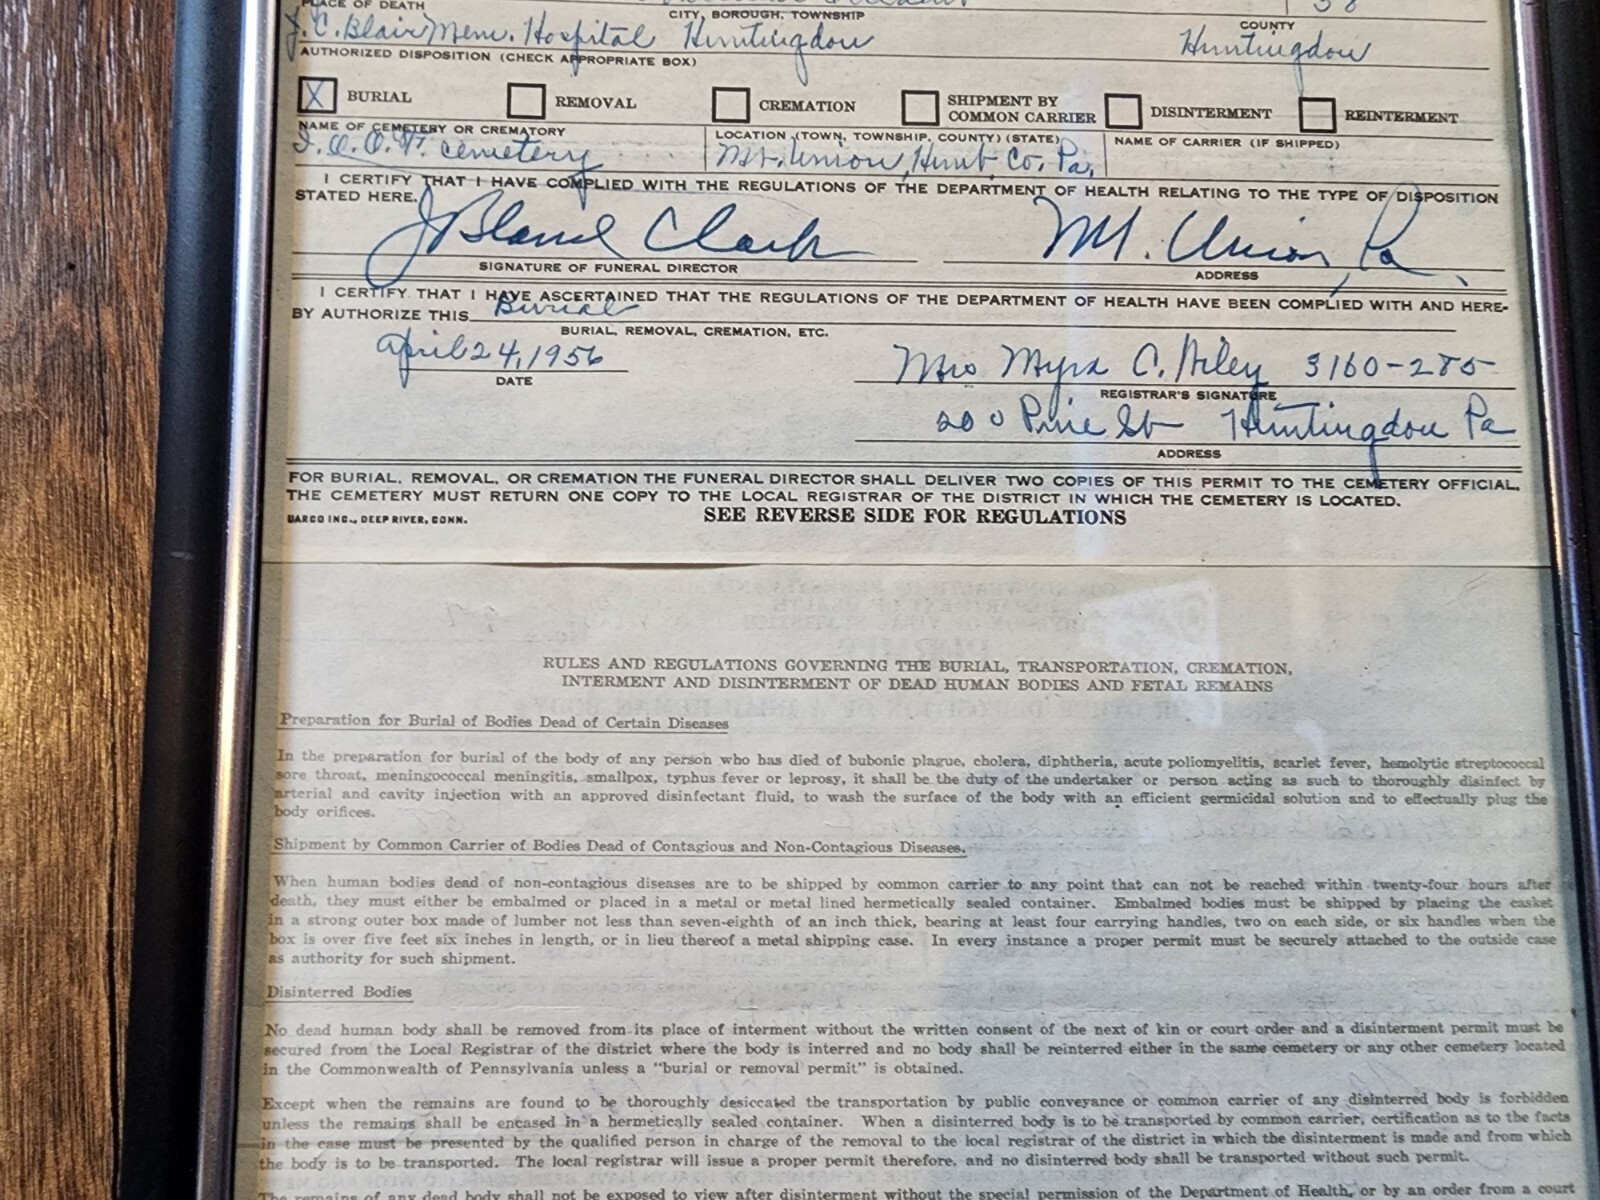 PLACE OF DEATH CITY, BOROUGH, TOWNSHIP COUNTY
J.C. Blair Mem. Hospital Huntingdon Huntingdon
AUTHORIZED DISPOSITION (CHECK APPROPRIATE BOX)
X BURIAL REMOVAL CREMATION SHIPMENT BY COMMON CARRIER DISINTERMENT REINTERMENT
NAME OF CEMETERY OR CREMATORY LOCATION (TOWN, TOWNSHIP, COUNTY) (STATE) NAME OF CARRIER (IF SHIPPED)
I.O.O.F. cemetery Mt. Union, Hunt. Co. Pa.
I CERTIFY THAT I HAVE COMPLIED WITH THE REGULATIONS OF THE DEPARTMENT OF HEALTH RELATING TO THE TYPE OF DISPOSITION
STATED HERE.
J Bland Clark Mt. Union, Pa.
SIGNATURE OF FUNERAL DIRECTOR ADDRESS
I CERTIFY THAT I HAVE ASCERTAINED THAT THE REGULATIONS OF THE DEPARTMENT OF HEALTH HAVE BEEN COMPLIED WITH AND HERE-
BY AUTHORIZE THIS Burial
BURIAL, REMOVAL, CREMATION, ETC.
April 24, 1956 Mrs Myra C. Riley 3160-285
DATE REGISTRAR'S SIGNATURE
200 Pine St Huntingdon Pa
ADDRESS
FOR BURIAL, REMOVAL, OR CREMATION THE FUNERAL DIRECTOR SHALL DELIVER TWO COPIES OF THIS PERMIT TO THE CEMETERY OFFICIAL.
THE CEMETERY MUST RETURN ONE COPY TO THE LOCAL REGISTRAR OF THE DISTRICT IN WHICH THE CEMETERY IS LOCATED.
UARCO INC., DEEP RIVER, CONN. SEE REVERSE SIDE FOR REGULATIONS
RULES AND REGULATIONS GOVERNING THE BURIAL, TRANSPORTATION, CREMATION,
INTERMENT AND DISINTERMENT OF DEAD HUMAN BODIES AND FETAL REMAINS
Preparation for Burial of Bodies Dead of Certain Diseases
In the preparation for burial of the body of any person who has died of bubonic plague, cholera, diphtheria, acute poliomyelitis, scarlet fever, hemolytic streptococcal
sore throat, meningococcal meningitis, smallpox, typhus fever or leprosy, it shall be the duty of the undertaker or person acting as such to thoroughly disinfect by
arterial and cavity injection with an approved disinfectant fluid, to wash the surface of the body with an efficient germicidal solution and to effectually plug the
body orifices.
Shipment by Common Carrier of Bodies Dead of Contagious and Non-Contagious Diseases.
When human bodies dead of non-contagious diseases are to be shipped by common carrier to any point that can not be reached within twenty-four hours after
death, they must either be embalmed or placed in a metal or metal lined hermetically sealed container. Embalmed bodies must be shipped by placing the casket
in a strong outer box made of lumber not less than seven-eighth of an inch thick, bearing at least four carrying handles, two on each side, or six handles when the
box is over five feet six inches in length, or in lieu thereof a metal shipping case. In every instance a proper permit must be securely attached to the outside case
as authority for such shipment.
Disinterred Bodies
No dead human body shall be removed from its place of interment without the written consent of the next of kin or court order and a disinterment permit must be
secured from the Local Registrar of the district where the body is interred and no body shall be reinterred either in the same cemetery or any other cemetery located
in the Commonwealth of Pennsylvania unless a "burial or removal permit" is obtained.
Except when the remains are found to be thoroughly desiccated the transportation by public conveyance or common carrier of any disinterred body is forbidden
unless the remains shall be encased in a hermetically sealed container. When a disinterred body is to be transported by common carrier, certification as to the facts
in the case must be presented by the qualified person in charge of the removal to the local registrar of the district in which the disinterment is made and from which
the body is to be transported. The local registrar will issue a proper permit therefore, and no disinterred body shall be transported without such permit.
The remains of any dead body shall not be exposed to view after disinterment without the special permission of the Department of Health, or by an order from a court